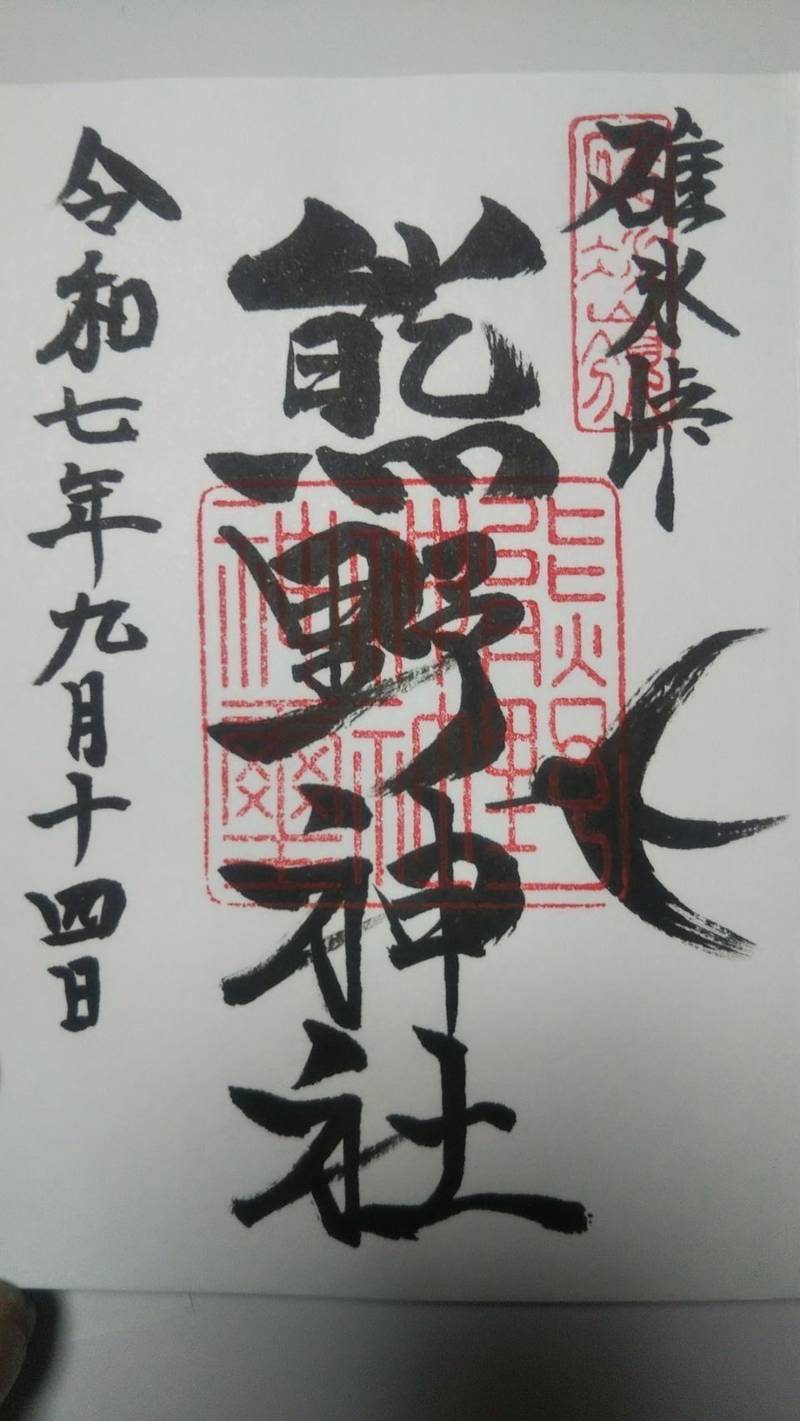 碓氷峠
熊野神社
令和七年九月十四日